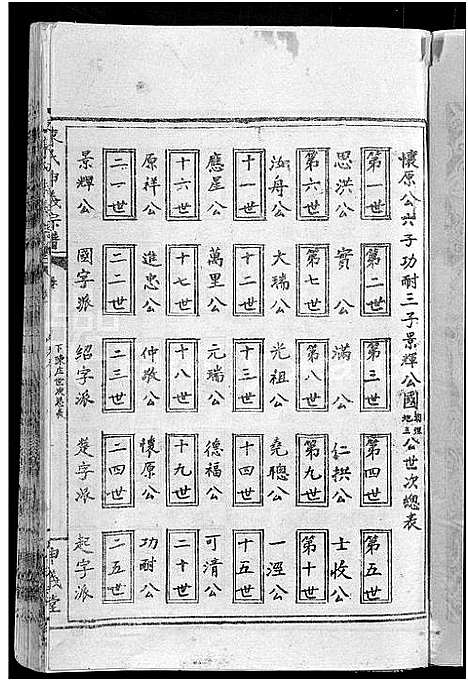 懷原公六子功耐三子景輝公國朝理地三公世次總表
第一世 第二世 第三世 第四世 第五世
思洪公 實公 滿公 仁拱公 士收公
第六世 第七世 第八世 第九世 第十世
汝舟公 大瑞公 光祖公 堯聰公 一涇公
十一世 十二世 十三世 十四世 十五世
應星公 萬里公 元瑞公 德福公 可清公
十六世 十七世 十八世 十九世 二十世
原祥公 進忠公 仲敬公 懷原公 功耐公
二一世 二二世 二三世 二四世 二五世
景輝公 國字派 绍字派 楚字派 起字派
陳氏申義宗譜
下陳庄世次總表
申義堂